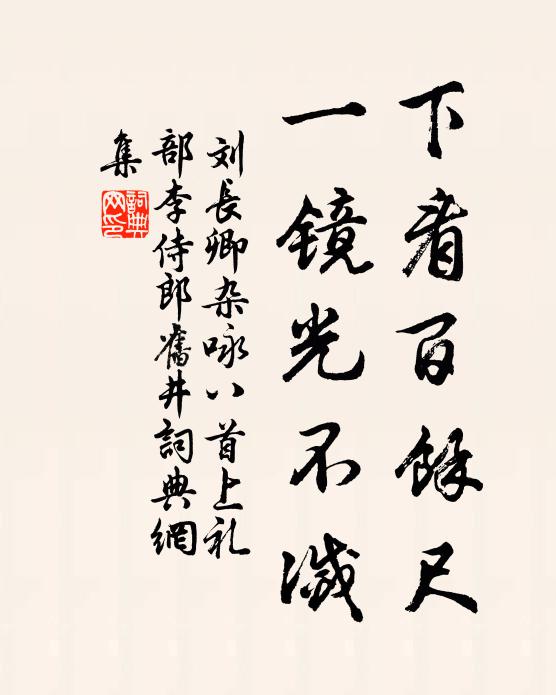 下看百餘尺
一镜光不滅
刘長卿杂咏八首上礼
部李侍郎舊井詞典網
集
詞典
网印